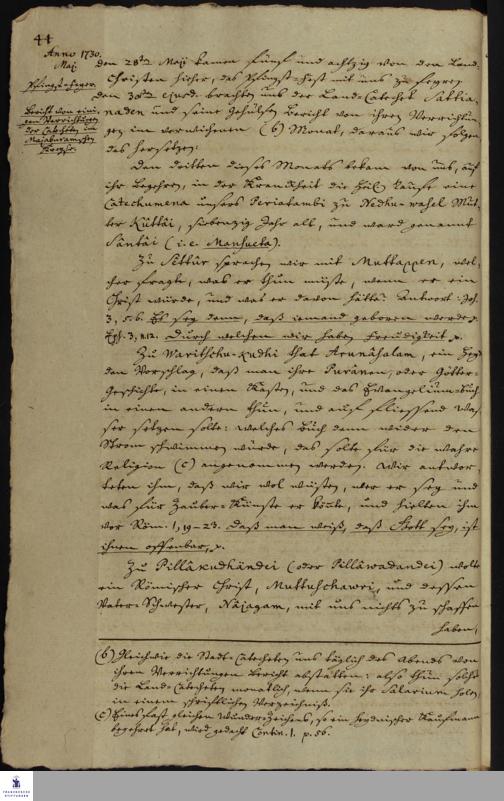 44
Anno 1730.
Maj.
Pfingst-feyer.
Bericht von eini-
gen Verrichtungen
der Catecheten im
Majaburamschen
Kreyse.
den 28ten Maji kamen fünf und achtzig von den Land-
Christen hieher, das Pfingst-Fest mit uns zu feyren.
den 30ten ejusd. brachten uns der Land-Catechet Sattia-
naden und seine Gehülfen Bericht von ihren Verrichtun-
gen im verwichenen (b) Monat, daraus wir folgen-
des hersetzen:
Den dritten dieses Monats bekam von uns, auf
ihr Begehren, in der Kranckheit die heil. Taufe eine
Catechumena unsers Periatambi zu Nedhu-wasel Mut-
ter Kuttâi, siebenzig Jahr alt, und ward genannt
Sântâi (i. e. Mansueta).
Zu Sittûr sprachen wir mit Muttappen, wel-
cher fragte, was er thun müste, wenn er ein
Christ würde, und was er davon hätte. Antwort: Joh.
3, 5. 6. Es sey denn, daß iemand geboren werde p.
Eph. 3, 12. Durch welchen wir haben Freudigkeit p.
Zu Warithchu-kudhi that Arunâhalam, ein Hey-
den Vorschlag, daß man ihre Purânen, oder Götter-
Geschichte, in einen Kasten, und das Evangelium-Buch
in einen andern thun, und auf fliessend Was-
ser setzen solte: welches Buch denn wieder den
Strom schwimmen würde, das solte für die wahre
Religion (c) angenommen werden. Wir antwor-
teten ihm, daß wir wol wüsten, wer er sey und
was für Zauber-Künste er könte, und hielten ihm
vor Röm. 1, 19-23. Daß man weiß, daß Gott sey, ist
ihnen offenbar, p.
Zu Pillâkudhândei (oder Pillâwadandei) wolte
ein Römischer Christ, Muttuhchawri, und dessen
Vater-Schwester, Najagam, mit uns nichts zu schaffen
haben,
(b) Gleichwie die Stadt-Catecheten uns täglich des Abends von
ihren Verrichtungen Bericht abstatten: also thun solches
die Land-Catecheten monatlich, wenn sie ihr Salarium holen,
in einem schriftlichen Verzeichniß.
(c) Eines fast gleichen Wunder-Zeichens, so ein heydnischer Kaufmann
begehret hat, wird gedacht Contin. I. p. 56.
FRANCKESCHE
STIFTUNGEN